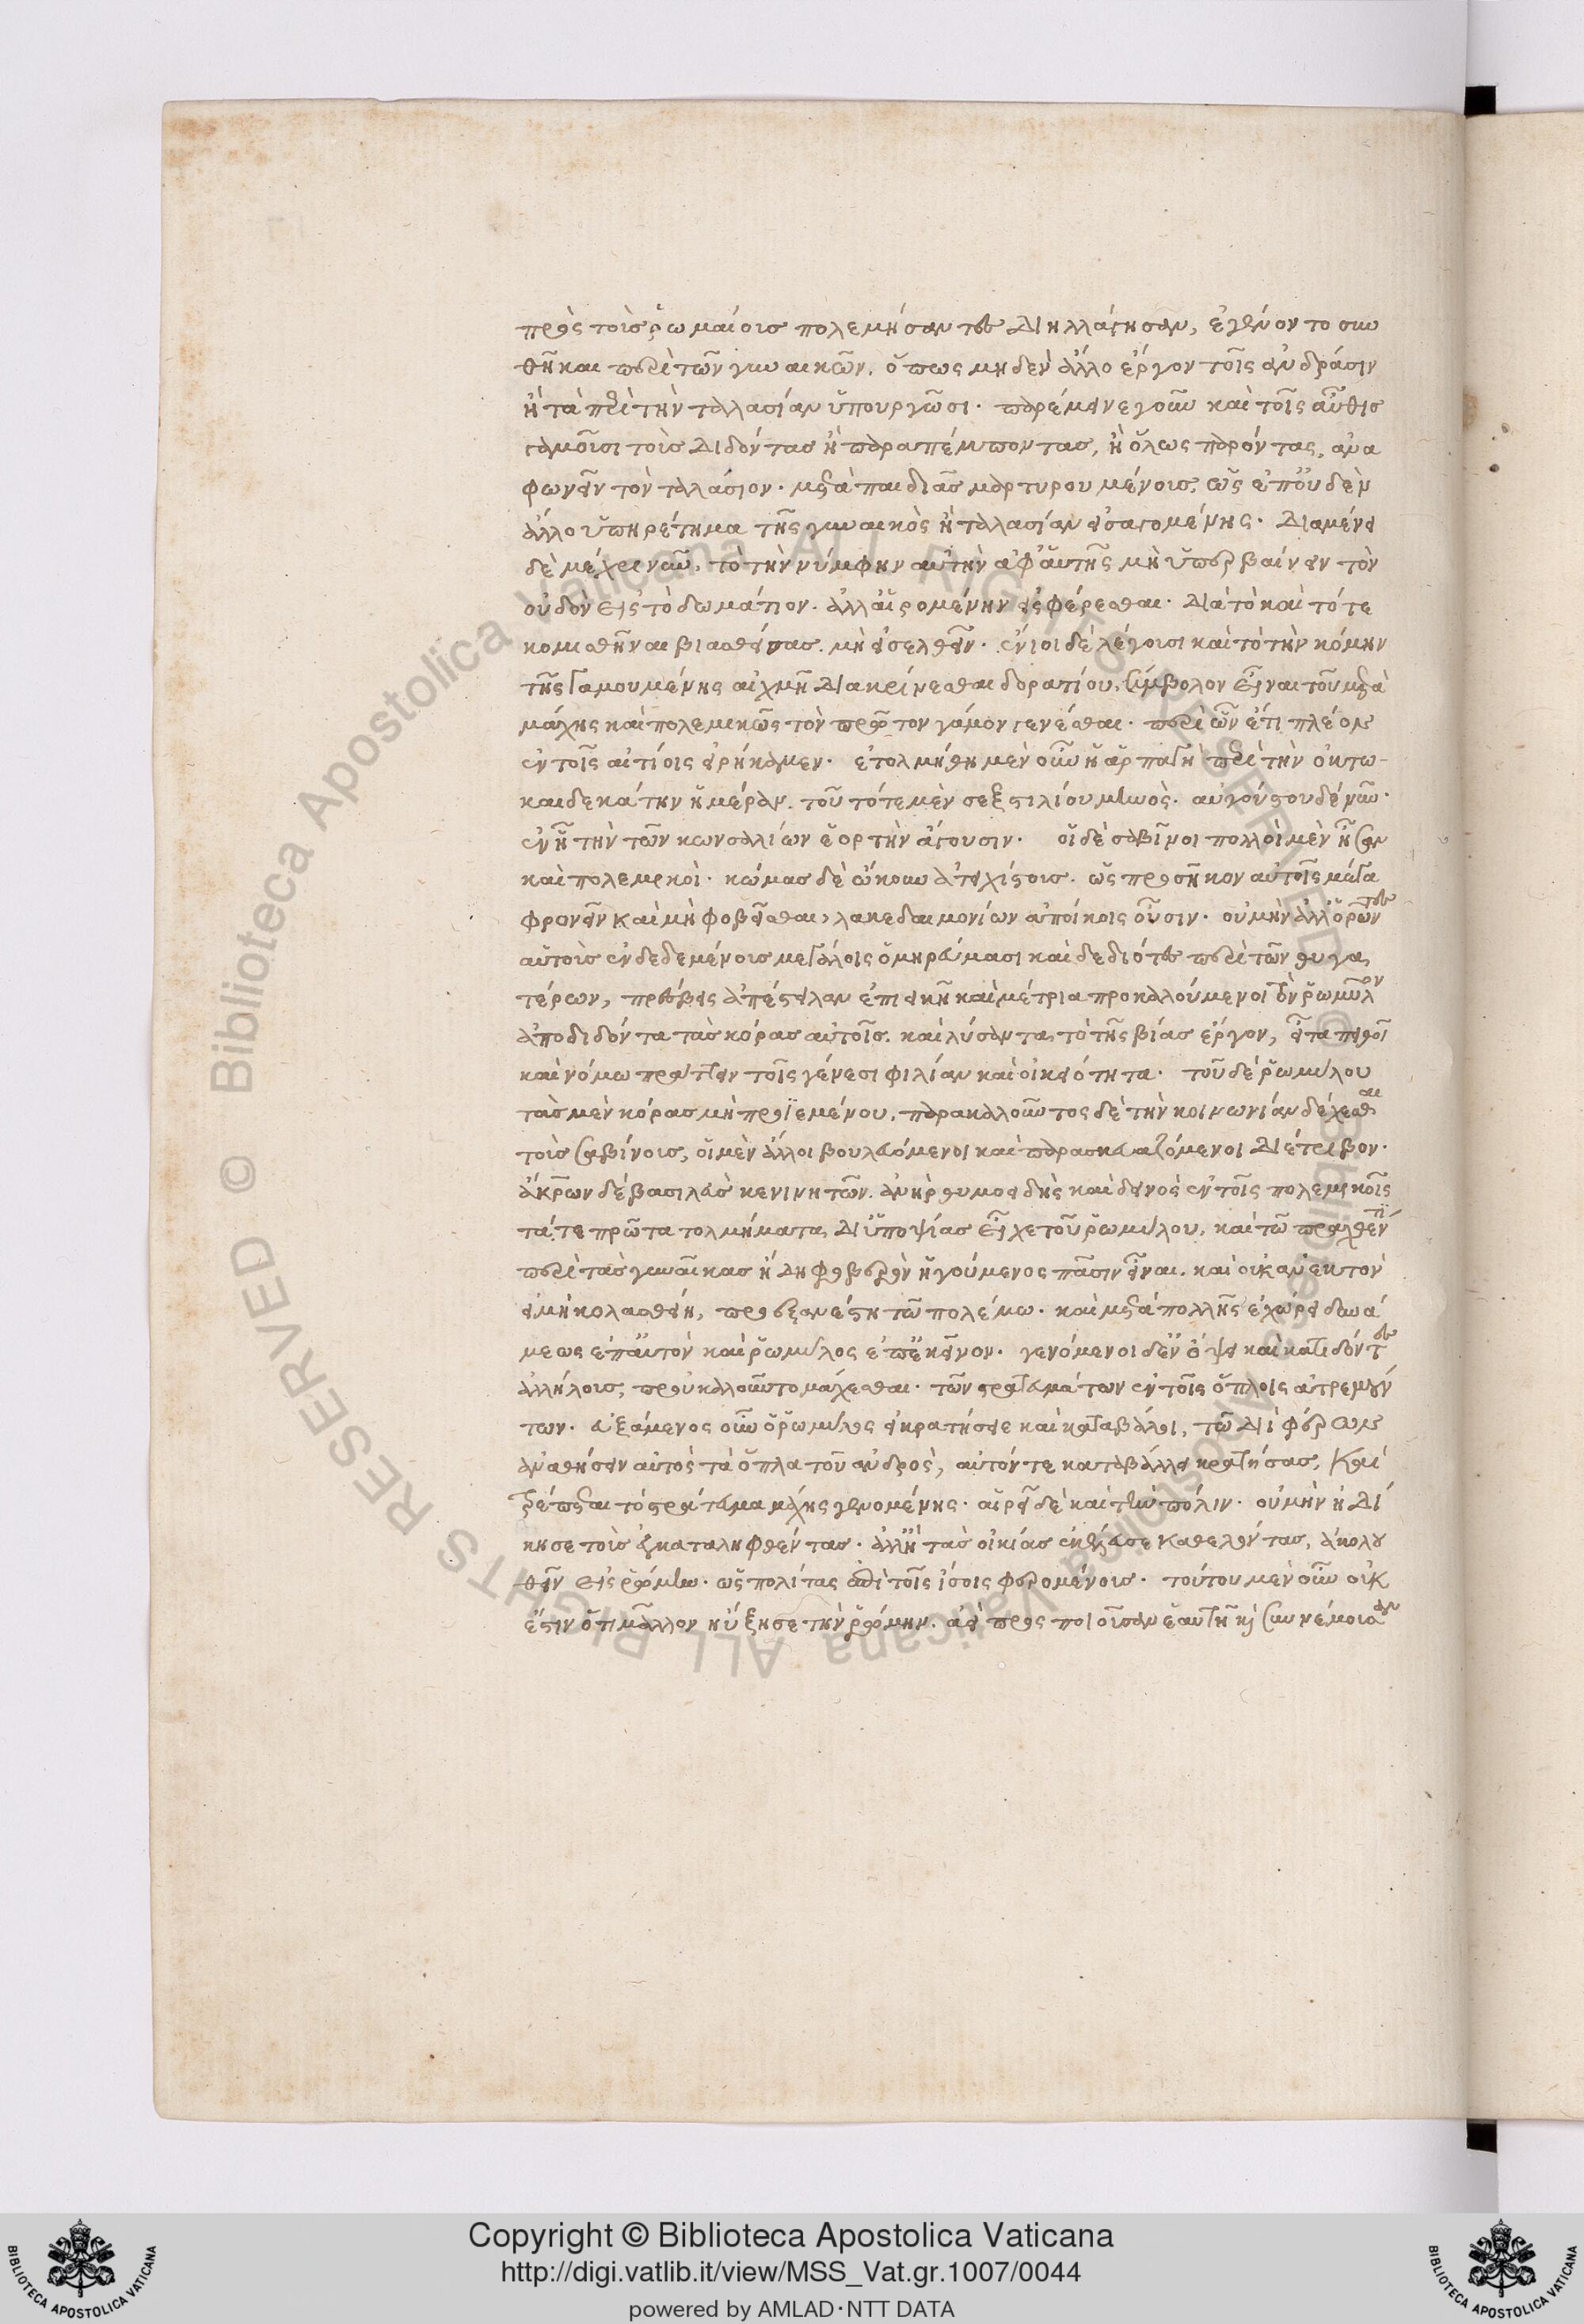 πρὸς τοὺς ῥωμαίους πολεμήσαντες διηλλάγησαν, ἐγένοντο συν
θῆκαι περὶ τῶν γυναικῶν. ὅπως μηδὲν ἄλλο ἔργον τοῖς ἀνδράσιν
ἢ τὰ περὶ τὴν ταλλασίαν ὑπουργῶσι. παρέμεινε γοῦν καὶ τοῖς αὖθις
γαμοῦσι τοὺς διδόντας ἢ παραπέμποντας, ἢ ὅλως παρόντας, ἀνα
φωνεῖν τὸν ταλάσιον. μετὰ παιδιᾶς μαρτυρουμένους, ὡς ἐπ' οὐδὲν
ἄλλο ὑπηρέτημα τῆς γυναικὸς ἢ ταλασίαν εἰσαγομένης. διαμένει
δὲ μέχρι νῦν, τὸ τὴν νύμφην αὐτὴν ἀφ' αὑτῆς μὴ ὑπερβαίνειν τὸν
οὐδὸν εἰς τὸ δωμάτιον. ἀλλ' αἰρομένην εἰσφέρεσθαι. διὰ τὸ καὶ τότε
κομισθῆναι βιασθείσας. μὴ εἰσελθεῖν. ἔνιοι δὲ λέγουσι καὶ τὸ τὴν κόμην
τῆς γαμουμένης αἰχμῇ διακρίνεσθαι δορατίου, σύμβολον εἶναι τοῦ μετὰ
μάχης καὶ πολεμικῶς τὸν πρῶτον γάμον γενέσθαι. περὶ ὧν ἔτι πλέον
ἐν τοῖς αἰτίοις εἰρήκαμεν. ἐτολμήθη μὲν οὖν ἡ ἁρπαγὴ περὶ τὴν ὀκτω-
καιδεκάτην ἡμέραν. τοῦ τότε μὲν σεξτιλίου μηνὸς. αὐγούστου δὲ νῦν.
ἐν ᾗ τὴν τῶν κωνσαλίων ἑορτὴν ἄγουσιν. οἱ δὲ σαβῖνοι πολλοὶ μὲν ἦσαν
καὶ πολεμικοὶ. κώμας δὲ ᾤκουν ἀτειχίστους. ὡς προσῆκον αὐτοῖς μέγα
φρονεῖν καὶ μὴ φοβεῖσθαι, λακεδαιμονίων ἀποίκοις οὖσιν. οὐ μὴν ἀλλ' ὁρῶντες
αὑτοὺς ἐνδεδεμένους μεγάλοις ὁμηρεύμασι καὶ δεδιότες περὶ τῶν θυγα
τέρων, πρέσβεις ἀπέστειλαν ἐπιεικῆ καὶ μέτρια προκαλούμενοι τὸν ῥωμύλον
ἀποδιδόντα τὰς κόρας αὐτοῖς. καὶ λύσαντα τὸ τῆς βίας ἔργον, εἶτα πειθοῖ
καὶ νόμω πράττειν τοῖς γένεσι φιλίαν καὶ οἰκειότητα. τοῦ δὲ ῥωμύλου
τὰς μὲν κόρας μὴ προϊεμένου, παρακαλοῦντος δὲ τὴν κοινωνίαν δέχεσθαι
τοὺς σαβίνους, οἱ μὲν ἄλλοι βουλευόμενοι καὶ παρασκευαζόμενοι διέτριβον.
ἄκρων δὲ βασιλεὺς κενινητῶν. ἀνὴρ θυμοειδὴς καὶ δεινὸς ἐν τοῖς πολεμικοῖς
τά, τε πρῶτα τολμήματα δι' ὑποψίας εἶχε τοῦ ῥωμύλου, καὶ τῶ πραχθέντι
περὶ τὰς γυναῖκας ἤδη φοβερὸν ἡγούμενος πᾶσιν εἶναι. καὶ οὐκ ἀνεκτὸν
εἰ μὴ κολασθείη, προεξανέστη τῶ πολέμω. καὶ μετὰ πολλῆς ἐχώρει δυνά
μεως ἐπ' αὐτὸν καὶ ῥωμύλος ἐπ' ἐκεῖνον. γενόμενοι δ' ἐν ὄψει καὶ κατιδόντες
ἀλλήλους, προὐκαλοῦντο μάχεσθαι. τῶν στρατευμάτων ἐν τοῖς ὅπλοις ἀτρεμούν
των. εὐξάμενος οὖν ὁ ῥωμύλος εἰ κρατήσειε καὶ καταβάλοι, τῶ διὶ φέρων
ἀναθήσειν αὐτὸς τὰ ὅπλα τοῦ ἀνδρὸς, αὐτόν τε καταβάλλει κρατήσας, καὶ
τρέπεται τὸ στράτευμα μάχης γενομένης. αἱρεῖ δὲ καὶ τὴν πόλιν. οὐ μὴν ἠδί
κησε τοὺς ἐγκαταληφθέντας. ἀλλ' ἢ τὰς οἰκίας ἐκέλευσε καθελόντας, ἀκολου
θεῖν εἰς ῥώμην. ὡς πολίτας ἐπὶ τοῖς ἴσοις ἐσομένους. τούτου μὲν οὖν οὐκ
ἔστιν ὅ τι μᾶλλον ηὔξησε τὴν ῥώμην. ἀεὶ προσποιοῦσαν ἑαυτῇ καὶ συννέμουσαν